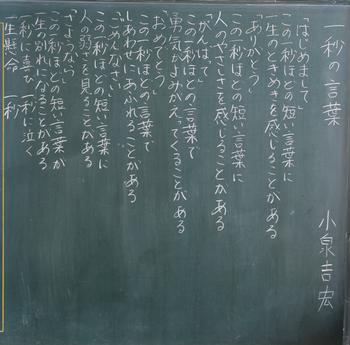 一秒の言葉
小泉吉宏
「はじめまして」
この一秒ほどの短い言葉に
一生のときめきを感じることがある
「ありがとう」
この一秒ほどの短い言葉に
人のやさしさを感じることがある
「がんばって」
この一秒ほどの言葉で
勇気がよみがえってくることがある
「おめでとう」
この一秒ほどの言葉で
しあわせにあふれることがある
「ごめんなさい」
この一秒ほどの言葉に
人の弱さを見ることがある
「さようなら」
この一秒ほどの短い言葉が
一生の別れになることがある
一秒に喜び 一秒に泣く
一生懸命 一秒